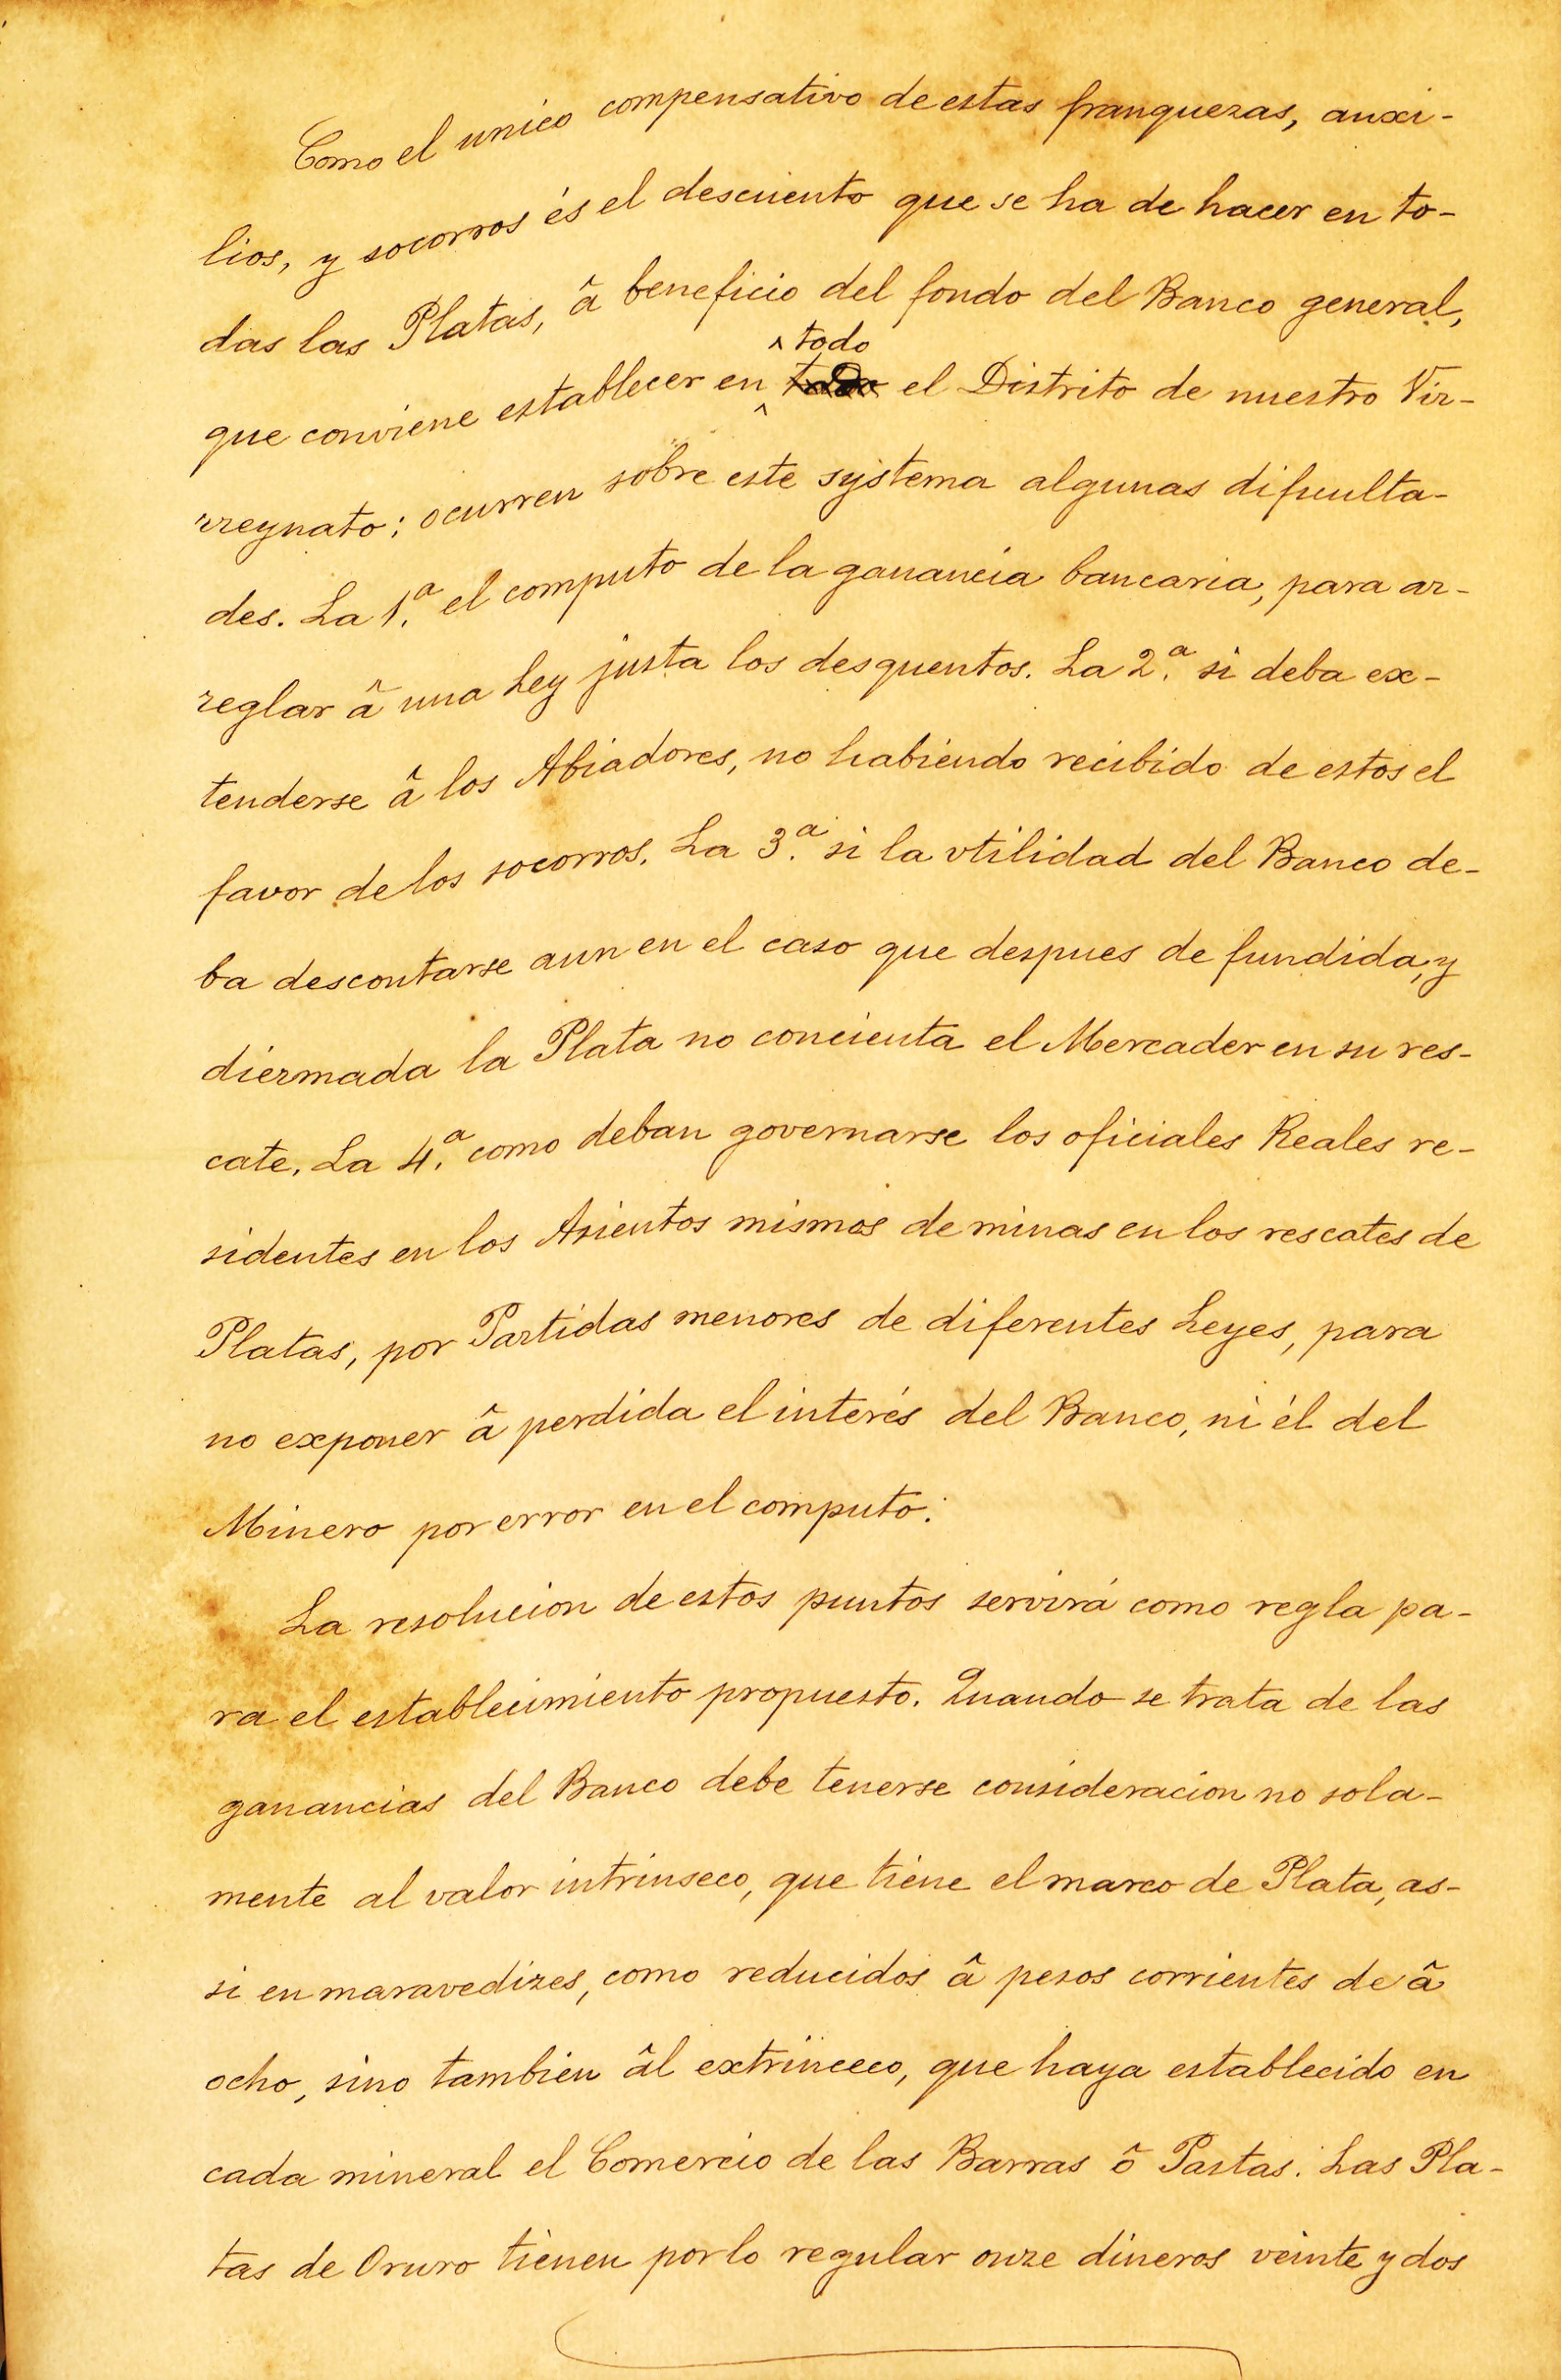 Como el unico compensativo de estas franquezas, auxi-
lios, y socorros és el descuento que se ha de hacer en to-
das las Platas, â beneficio del fondo del Banco general,
^ todo
que conviene establecer en ^ el Distrito de nuestro Vir-
rreynato; ocurren sobre este systema algunas dificulta-
des. La 1.ª el computo de la ganancia bancaria, para ar-
reglar â una Ley justa los desquentos. La 2.ª si deba ex-
tenderse â los Abiadores, no habiendo recibido de estos el
favor de los socorros. La 3.ª si la vtilidad del Banco de-
ba descontarse aun en el caso que despues de fundida, y
diezmada la Plata no concienta el Mercader en su res-
cate. La 4.ª como deban governarse los oficiales Reales re-
sidentes en los Asientos mismos de minas en los rescates de
Platas, por Partidas menores de diferentes Leyes, para
no exponer â perdida el interés del Banco, ni él del
Minero por error en el computo.
La resolucion de estos puntos servirá como regla pa-
ra el establecimiento propuesto. Quando se trata de las
ganancias del Banco debe tenerse consideracion no sola-
mente al valor intrinseco, que tiene el marco de Plata, as-
si en maravedizes, como reducidos â pesos corrientes de â
ocho, sino tambien âl extrinceco, que haya establecido en
cada mineral el Comercio de las Barras ô Pastas. Las Pla-
tas de Oruro tienen por lo regular onze dineros veinte y dos